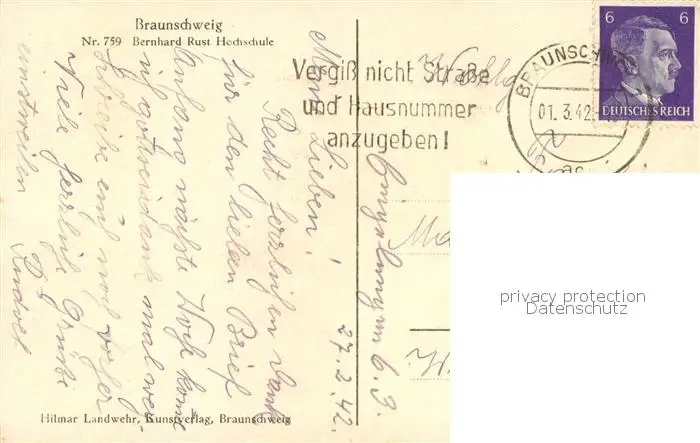 Braunschweig
Nr. 759 Bernhard Rust Hochschule
Vergiß nicht Straße
und Hausnummer
anzugeben!
BRAUNSCHWEIG
01. 3. 42
6 6
DEUTSCHES REICH
27. 2. 42.
Meine Lieben!
Recht herzlichen Dank
für den lieben Brief
Anfang nächste Woche komme
ich gottseidank mal weg.
Schreibe euch noch vorher
Viele herzliche Grüße
einstweilen
am 6. 3.
privacy protection
Datenschutz
Hilmar Landwehr, Kunstverlag, Braunschweig